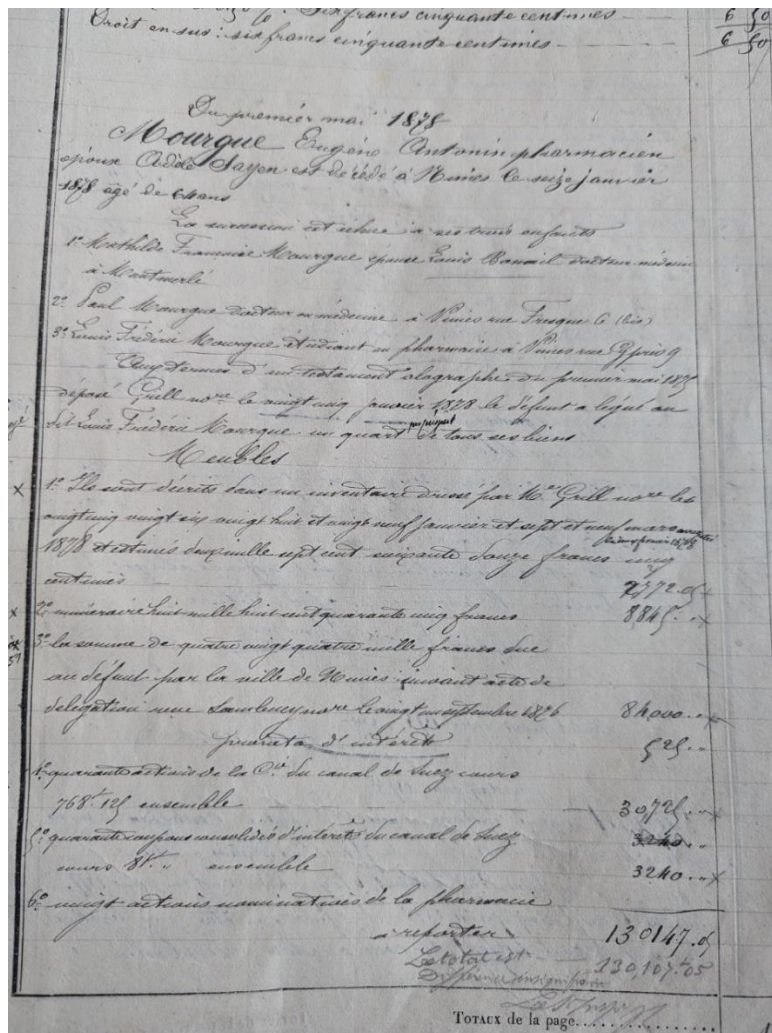 Six francs cinquante centimes 6 50
Droit en sus : six francs cinquante centimes 6 50
Du premier mai 1878
Mourgue Eugène Antonin pharmacien
époux Adèle Sayen est décédé à Nimes le seize janvier
1878 agé de 64 ans
La succession est échue à ses trois enfants
1° Mathilde Francoise Mourgue épouse Louis docteur médecin
à Montmerle
2° Paul Mourgue docteur en médecine à Nimes rue Fresque 6 (bis)
3° Louis Frédéric Mourgue étudiant en pharmacie à Nimes rue 9
Aux termes d'un testament olographe du premier mai 1875
déposé Grill nore le vingt cinq janvier 1878 le défunt a légué au
dit Louis Frédéric Mourgue un quart de tous ses biens
Meubles
1° Ils sont décrits dans un inventaire dressé par Me Grill nore les
vingt cinq vingt six vingt huit et vingt neuf janvier et sept et neuf mars
1878 et estimés deux mille sept cent soixante douze francs cinq
centimes 2772.05
2° numéraire huit mille huit cent quarante cinq francs 8845..
3° la somme de quatre vingt quatre mille francs due
au défunt par la ville de Nimes suivant acte de
délégation reçu nore le vingt un septembre 1876 84000..
prorata d'intérêt 525..
4° quarante actions de la Cie du canal de Suez cours
768f 125 ensemble 30725..
5° quarante coupons consolidés d'intérêts du canal de Suez 3240..
cours 81f.. ensemble 3240..
6° vingt actions nominatives de la pharmacie
à reporter 130147.05
Le total est 130,107.05
Différence insignifiante
TOTAUX de la page